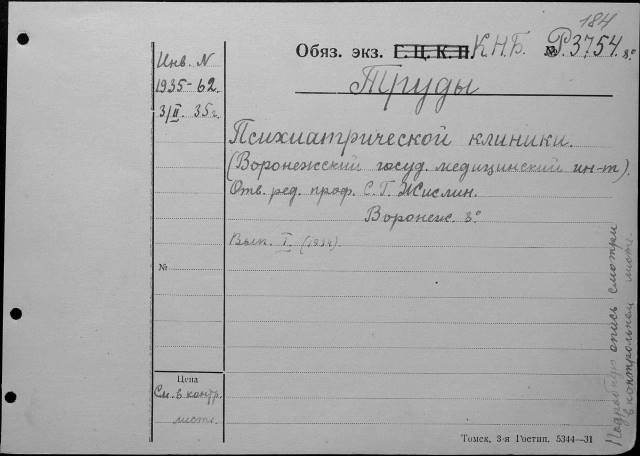 184
Обяз. экз. Г. Ц. К. П. К.Н.Б. № Р3754. 8°
Инв. N
1935-62
3/II. 35 г.
Труды
Психиатрической клиники.
(Воронежский госуд. медицинский ин-т).
Отв. ред. проф. С. Г. Жислин.
Воронеж. 8°
Вып. I. (1934).
№
Цена
См. в контр.
листе.
Подробную опись смотри
в контрольном листе.
Томск, 3-я Гостип. 5344—31